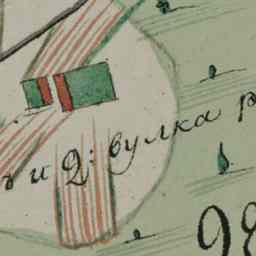 ъ и Д: вулка р
98